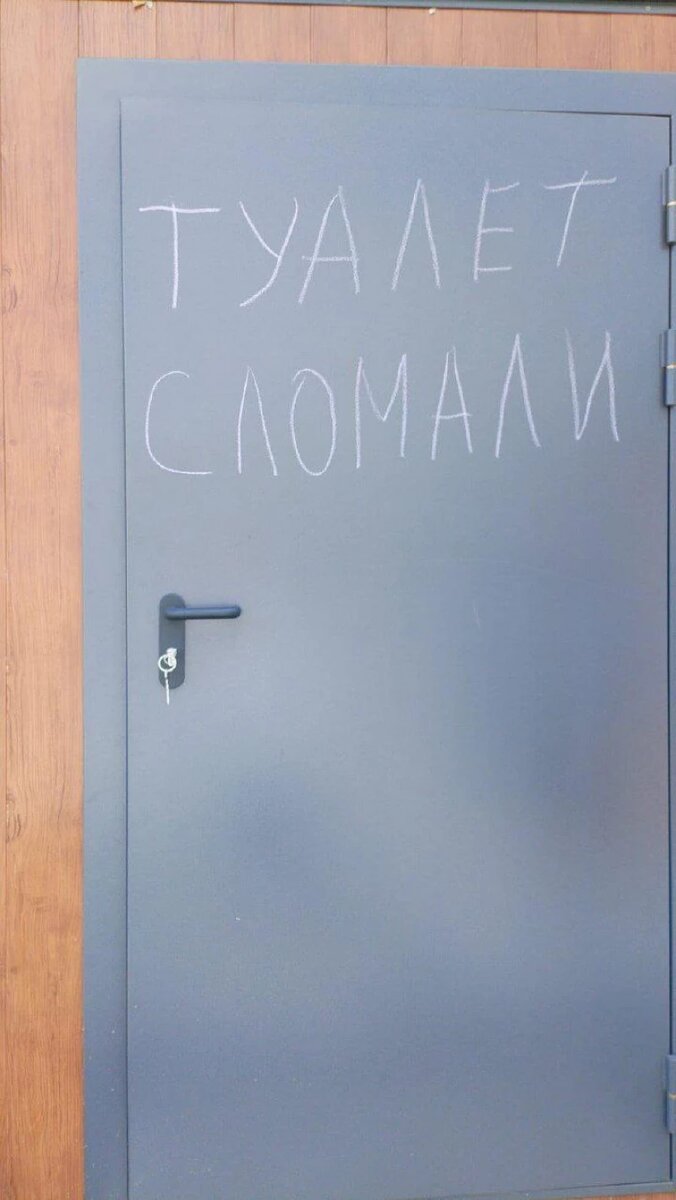 ТУАЛЕТ
СЛОМАЛИ